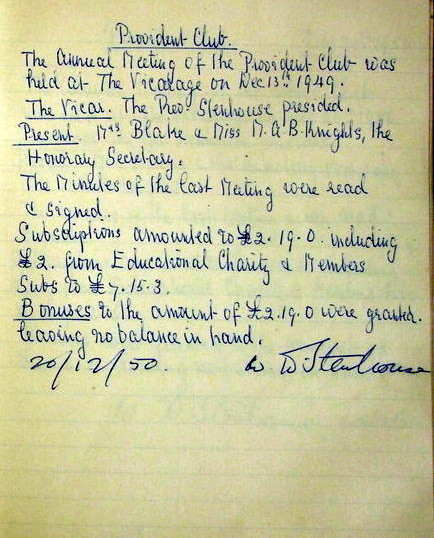 Provident Club.
The Annual Meeting of the Provident Club was
held at The Vicarage on Dec 13th 1949.
The Vicar. The Rev. Stenhouse presided.
Present. Mrs Blake & Miss M. A. B. Knights, the
Honorary Secretary.
The Minutes of the last Meeting were read
& signed.
Subscriptions amounted to £2.19.0. including
£2. from Educational Charity & Members
Subs to £7.15.3.
Bonuses to the amount of £2.19.0 were granted.
leaving no balance in hand.
20/12/50. W W Stenhouse